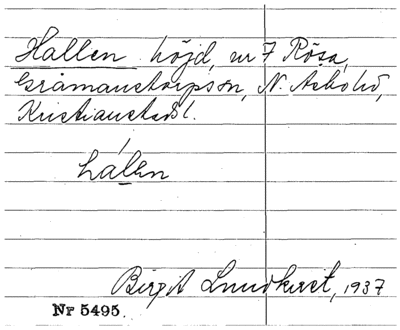 Hallen höjd, nr 7 Rösa,
Gråmanstorps sn, N. Åsbo hd,
Kristianstads l.
hálen
Birgit Lundkvist, 1937
Nr 5495